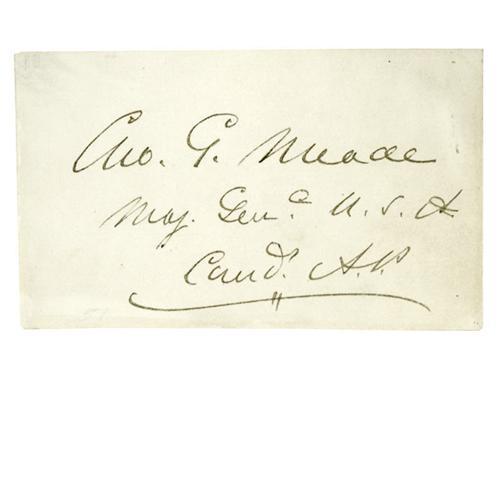 Geo. G. Meade
Maj. Genl. U. S. A
Comd. A.P.